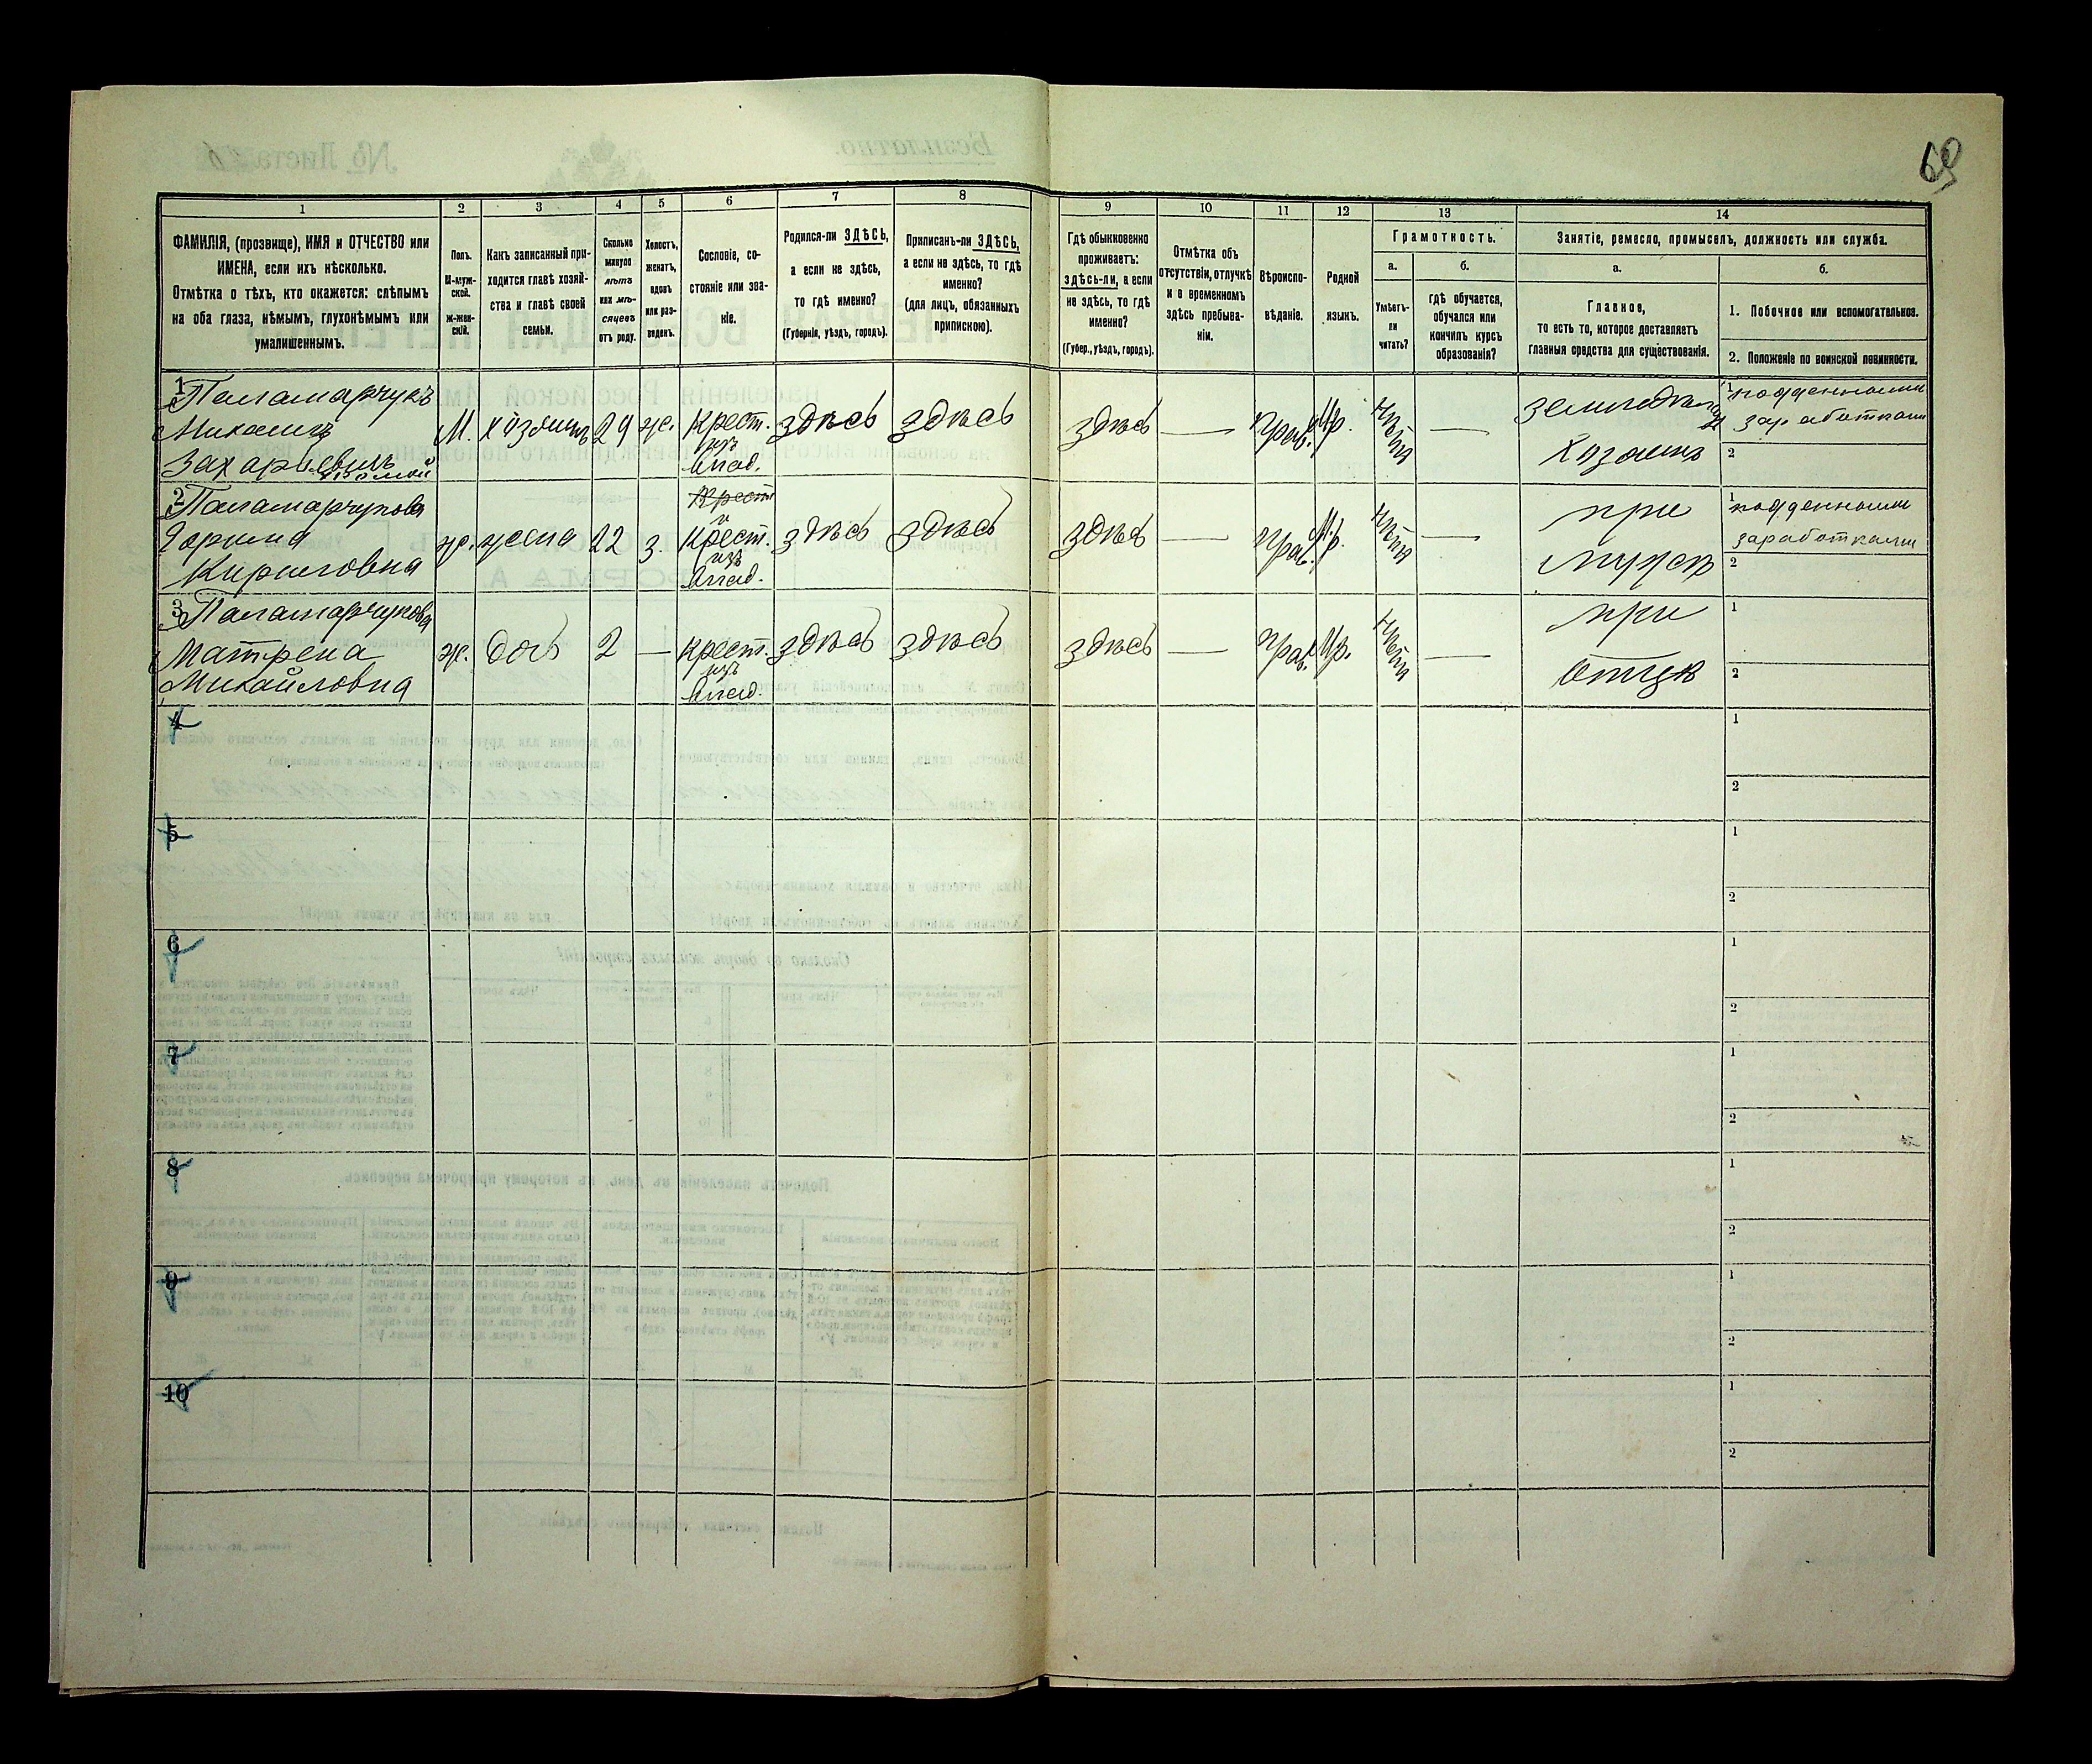 69
1 2 3 4 5 6 7 8 9 10 11 12 13 14
ФАМИЛІЯ, (прозвище), ИМЯ и ОТЧЕСТВО или
ИМЕНА, если ихъ нѣсколько.
Отмѣтка о тѣхъ, кто окажется: слѣпымъ
на оба глаза, нѣмымъ, глухонѣмымъ или
умалишеннымъ.
Полъ.
М-муж-
ской.
ж-жен-
скій.
Какъ записанный при-
ходится главѣ хозяй-
ства и главѣ своей
семьи.
Сколько
минуло
лѣтъ
или мѣ-
сяцевъ
отъ роду.
Холостъ,
женатъ,
вдовъ
или раз-
веденъ.
Сословіе, со-
стояніе или зва-
ніе.
Родился-ли ЗДѢСЬ,
а если не здѣсь,
то гдѣ именно?
(Губернія, уѣздъ, городъ).
Приписанъ-ли ЗДѢСЬ,
а если не здѣсь, то гдѣ
именно?
(для лицъ, обязанныхъ
припискою).
Гдѣ обыкновенно
проживаетъ:
здѣсь-ли, а если
не здѣсь, то гдѣ
именно?
(Губер., уѣздъ, городъ).
Отмѣтка объ
отсутствіи, отлучкѣ
и о временномъ
здѣсь пребыва-
ніи.
Вѣроиспо-
вѣданіе.
Родной
языкъ.
Грамотность.
а.
Умѣетъ-
ли
читать?
б.
гдѣ обучается,
обучался или
кончилъ курсъ
образованія?
Занятіе, ремесло, промыселъ, должность или служба.
а.
Главное,
то есть то, которое доставляетъ
главныя средства для существованія.
б.
1. Побочное или вспомогательное.
2. Положеніе по воинской повинности.
1 Паламарчукъ
Михаилъ
Захарьевичъ
М. хозяинъ 29 ж. Крест.
изъ
влад.
здѣсь здѣсь здѣсь — Прав. Мр. нѣтъ —
земледѣлецъ
хозяинъ
1 подденными
заработками
2
2 Паламарчукова
Ирина
Кириловна
ж. жена 22 з. Крест
и
Крест.
изъ
влад.
здѣсь здѣсь здѣсь — Прав. Мр. нѣтъ —
при
мужѣ
1 подденными
заработками
2
3 Паламарчукова
Матрена
Михайловна
ж. дочь 2 — крест.
изъ
влад.
здѣсь здѣсь здѣсь — Прав. Мр. нѣтъ —
при
отцѣ
1
2
4 1
2
5 1
2
6 1
2
7 1
2
8 1
2
9 1
2
10 1
2